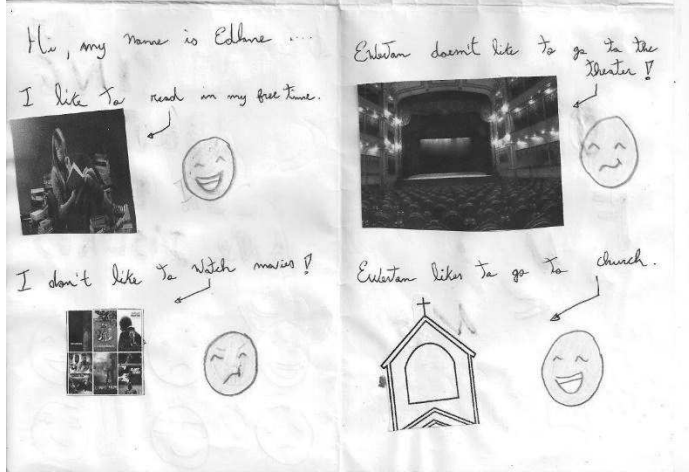 Hi, my name is Edlane ....
I like to read in my free time.
I don't like to watch movies!
Ewertan doesn't like to go to the
theater!
Ewertan likes to go to church.